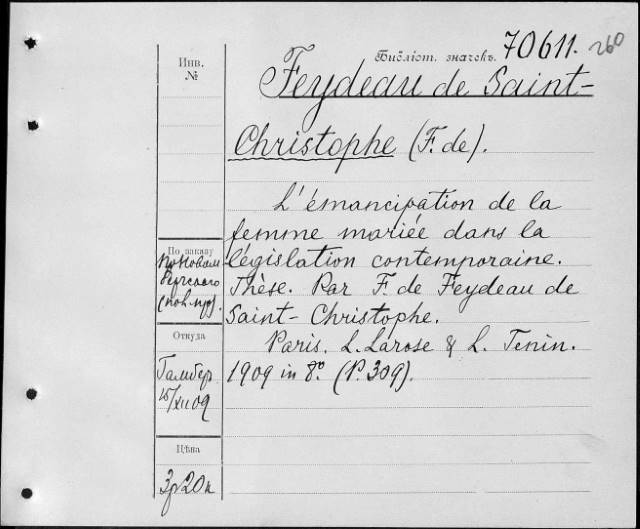 Инв.
№
Библіот. значекъ.
70611.
260
Feydeau de Saint-
Christophe (F. de).
L'émancipation de la
femme mariée dans la
législation contemporaine.
Thèse. Par F. de Feydeau de
Saint-Christophe.
Paris. L. Larose & L. Tenin.
1909 in 8º. (P. 309).
По заказу
Откуда
15/XII 09
Цѣна
3р20к